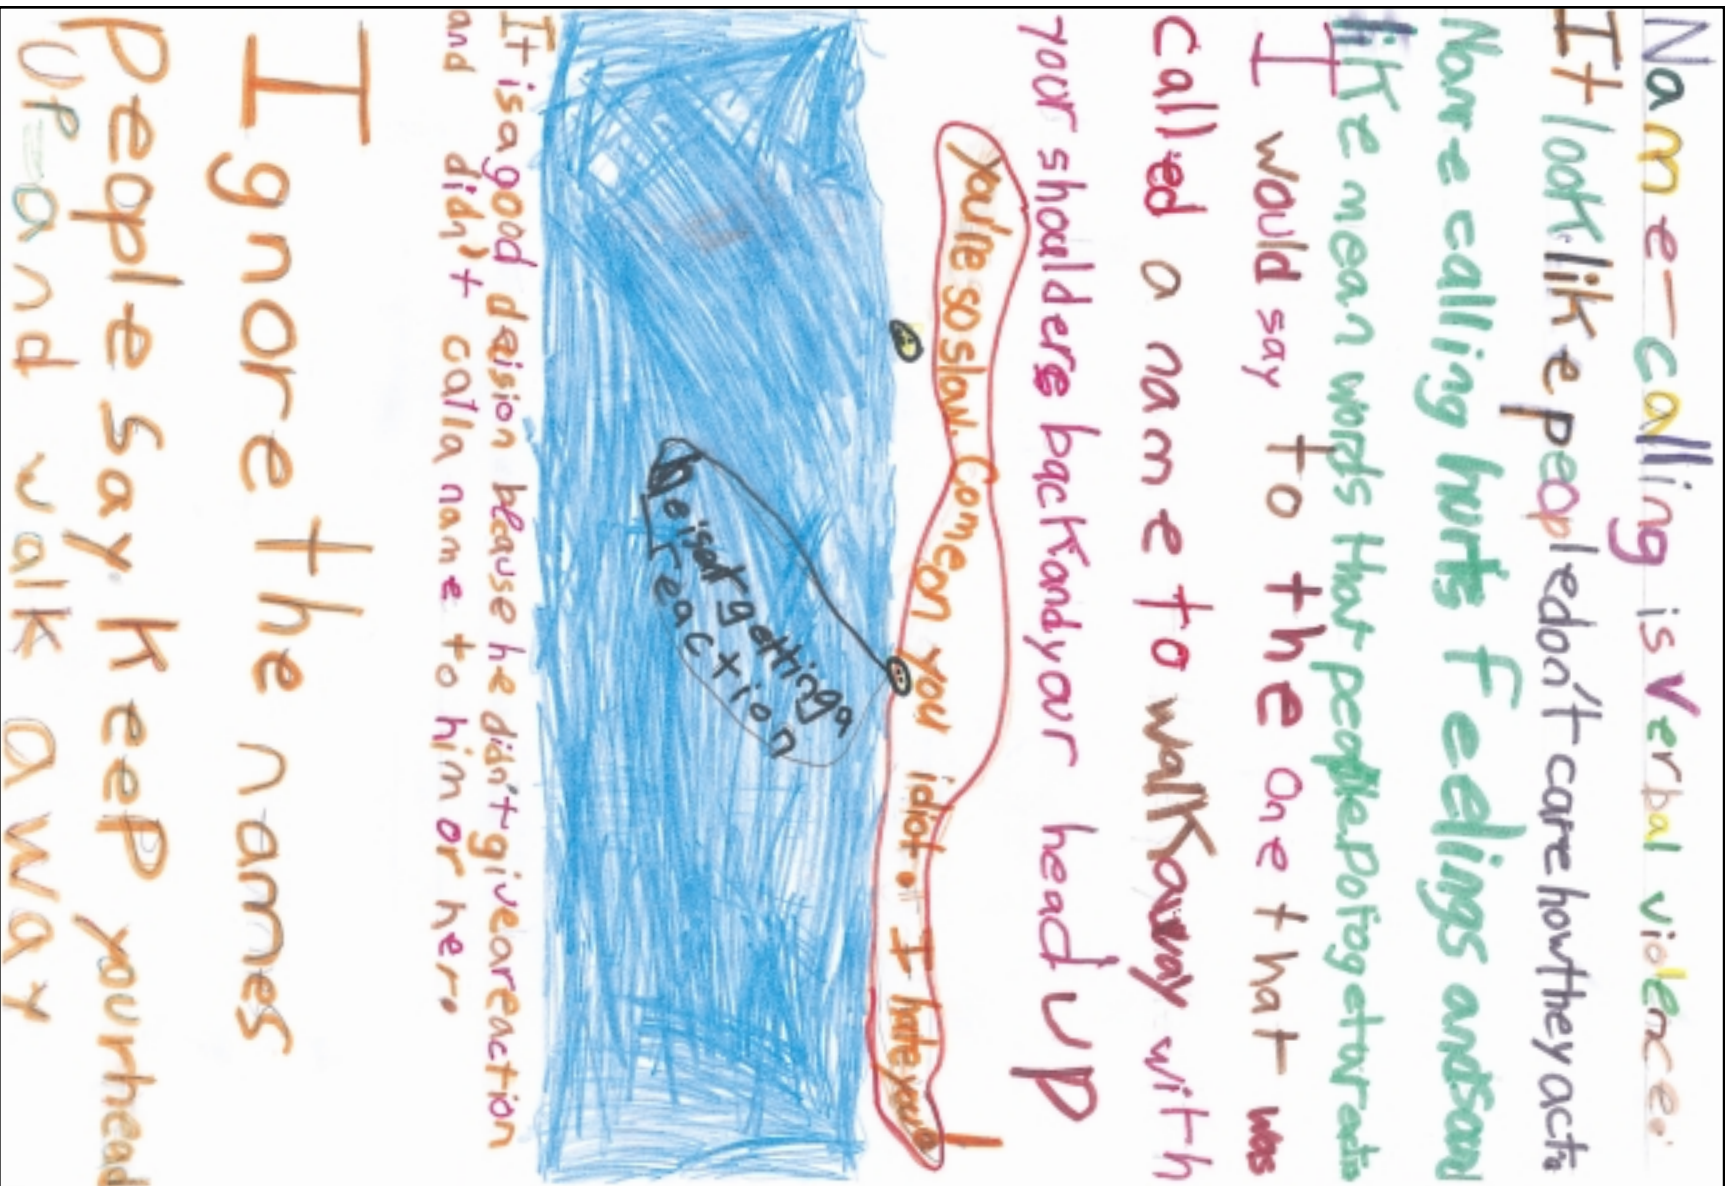 Name-calling is verbal violence.
It look like people don't care how they act.
Name calling hurts feelings and
like mean words that people
I would say to the one that was
called a name to walk away with
your shoulders back and your head up
You're so slow. Come on you idiot. I hate you
getting a
reaction
It is a good deision because he didn't give a reaction
and didn't call a name to him or her.
Ignore the names
People say keep your head
up and walk away